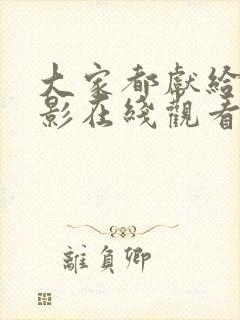 大家都獻給
影在綫觀看
離負卿